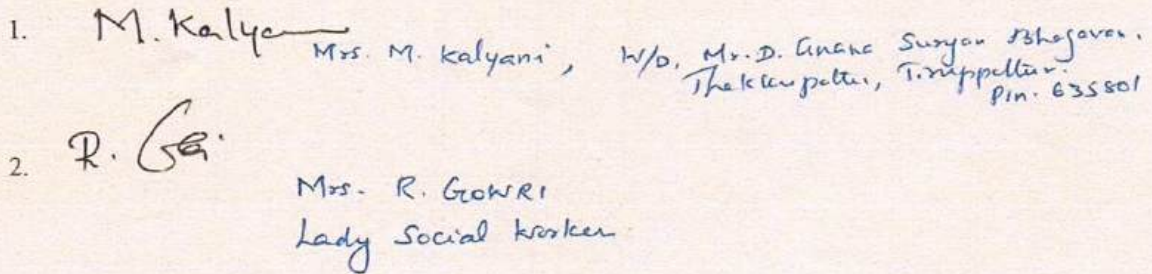 1. M. Kalyani
Mrs. M. Kalyani, W/o. Mr. D. Gnana Suryan Bhagavan.
Thekkupattu, Tiruppattur.
Pin. 635801
2. R. Gowri
Mrs. R. GOWRI
Lady Social Worker